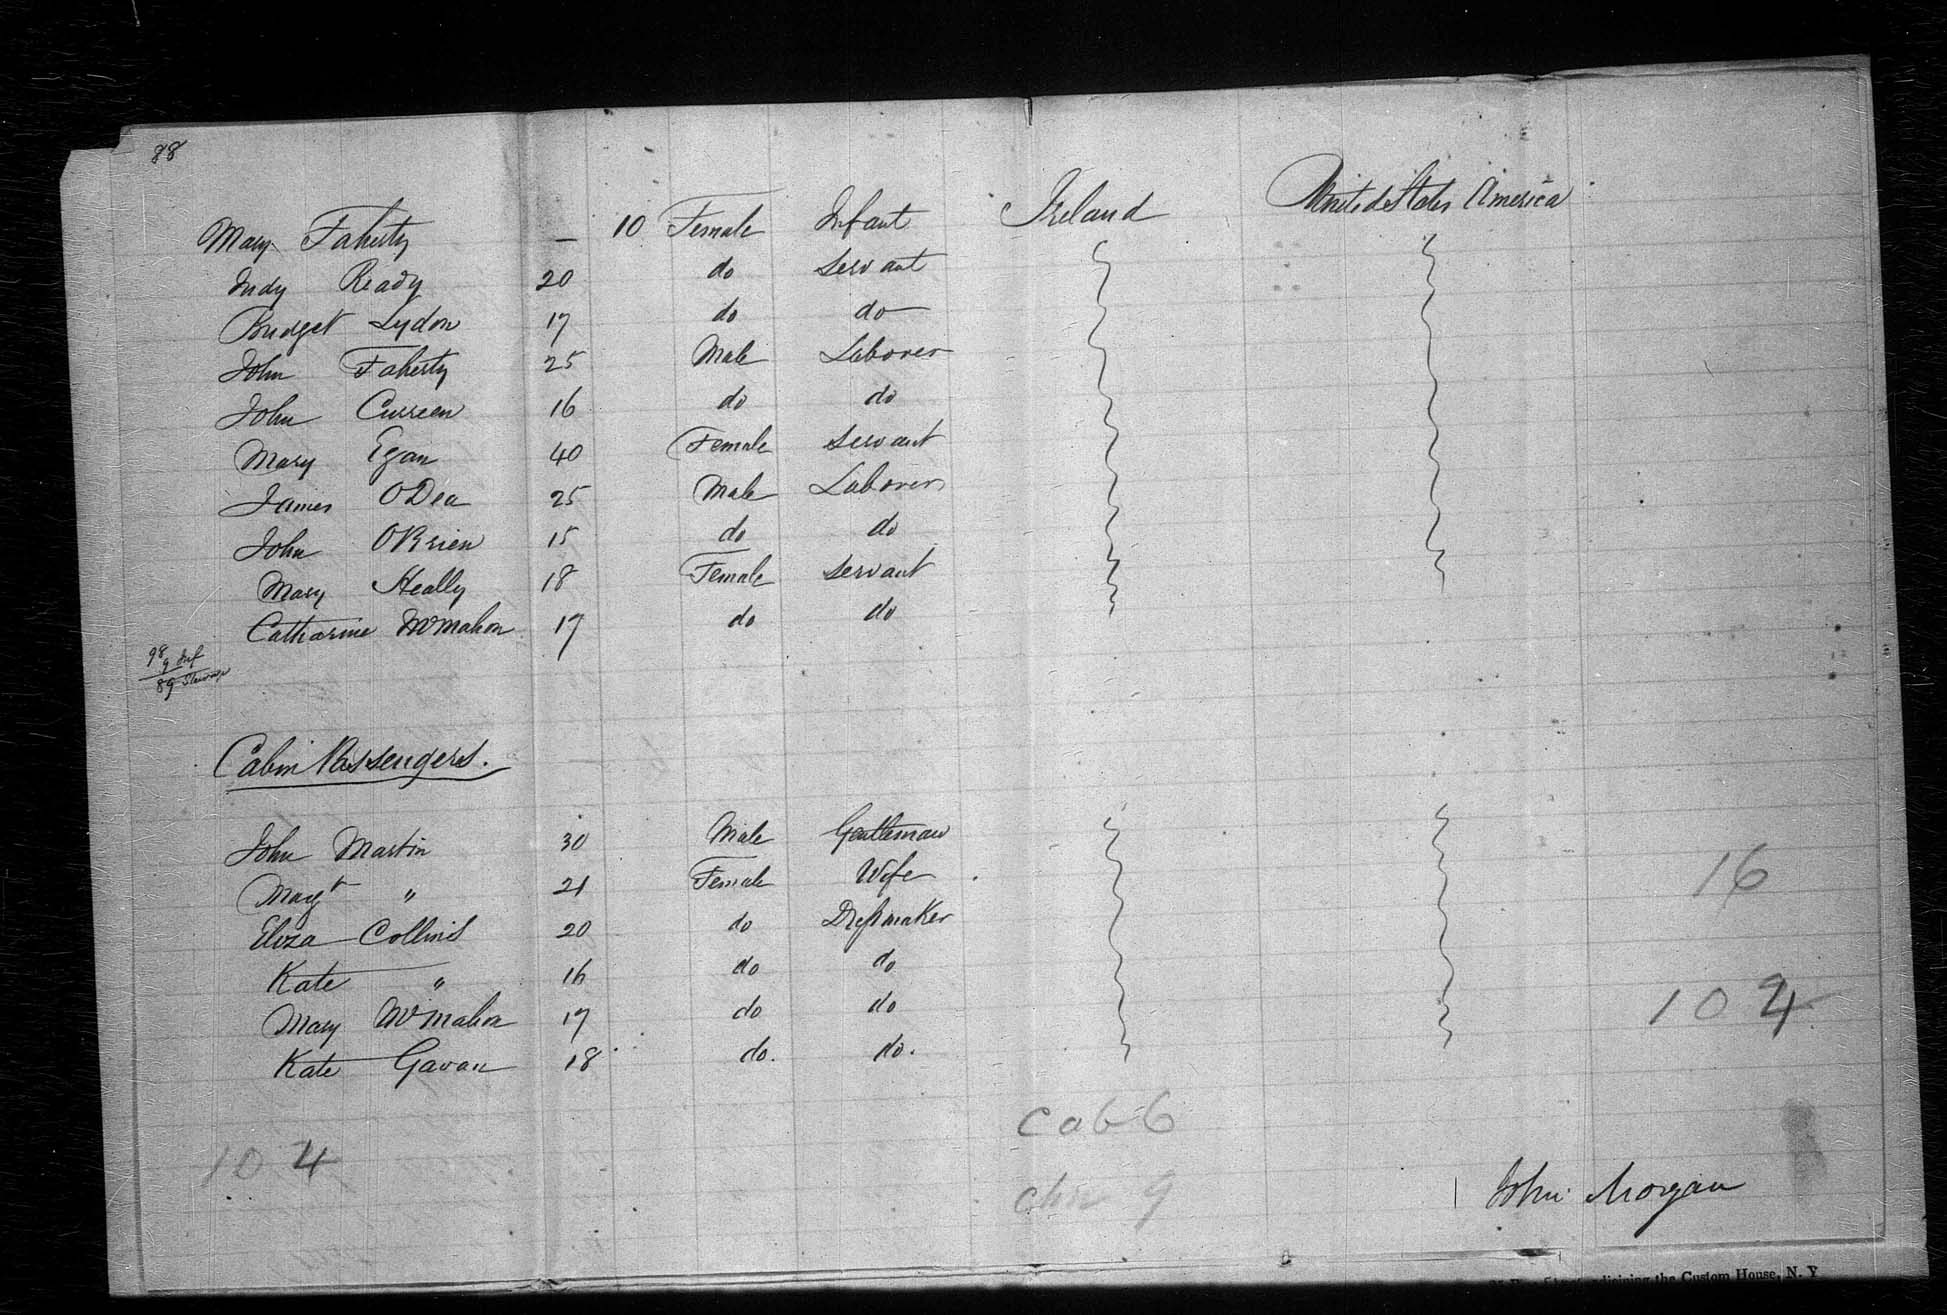 88
Mary Faherty — 10 Female Infant Ireland United States America
Judy Ready 20 do Servant
Bridget Lydon 17 do do
John Faherty 25 Male Laborer
John Curreen 16 do do
Mary Egan 40 Female Servant
James ODea 25 Male Laborer
John OBrien 15 do do
Mary Heally 18 Female Servant
Catharine McMahon 17 do do
98
9 Inf
89 Steerage
Cabin Passengers.
John Martin 30 Male Gentleman
Margt " 21 Female Wife
Eliza Collins 20 do Dressmaker
16
Kate " 16 do do
Mary McMahon 17 do do
104
Kate Gavan 18 do. do.
Cab 6
104
chn 9
John Morgan
the Custom House, N. Y